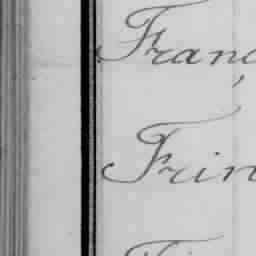 Franc
Frin